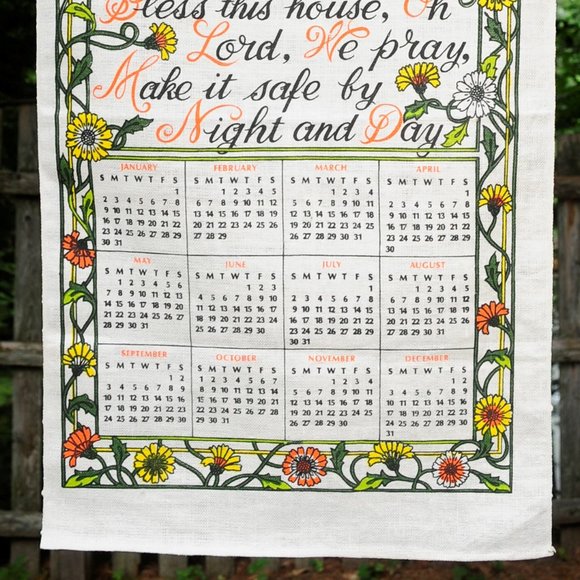 Bless this house, Oh
Lord, We pray,
Make it safe by
Night and Day
JANUARY
S M T W T F S
1
2 3 4 5 6 7 8
9 10 11 12 13 14 15
16 17 18 19 20 21 22
23 24 25 26 27 28 29
30 31
FEBRUARY
S M T W T F S
1 2 3 4 5
6 7 8 9 10 11 12
13 14 15 16 17 18 19
20 21 22 23 24 25 26
27 28 29
MARCH
S M T W T F S
1 2 3 4
5 6 7 8 9 10 11
12 13 14 15 16 17 18
19 20 21 22 23 24 25
26 27 28 29 30 31
APRIL
S M T W T F S
1
2 3 4 5 6 7 8
9 10 11 12 13 14 15
16 17 18 19 20 21 22
23 24 25 26 27 28 29
30
MAY
S M T W T F S
1 2 3 4 5 6
7 8 9 10 11 12 13
14 15 16 17 18 19 20
21 22 23 24 25 26 27
28 29 30 31
JUNE
S M T W T F S
1 2 3
4 5 6 7 8 9 10
11 12 13 14 15 16 17
18 19 20 21 22 23 24
25 26 27 28 29 30
JULY
S M T W T F S
1
2 3 4 5 6 7 8
9 10 11 12 13 14 15
16 17 18 19 20 21 22
23 24 25 26 27 28 29
30 31
AUGUST
S M T W T F S
1 2 3 4 5
6 7 8 9 10 11 12
13 14 15 16 17 18 19
20 21 22 23 24 25 26
27 28 29 30 31
SEPTEMBER
S M T W T F S
1 2
3 4 5 6 7 8 9
10 11 12 13 14 15 16
17 18 19 20 21 22 23
24 25 26 27 28 29 30
OCTOBER
S M T W T F S
1 2 3 4 5 6 7
8 9 10 11 12 13 14
15 16 17 18 19 20 21
22 23 24 25 26 27 28
29 30 31
NOVEMBER
S M T W T F S
1 2 3 4
5 6 7 8 9 10 11
12 13 14 15 16 17 18
19 20 21 22 23 24 25
26 27 28 29 30
DECEMBER
S M T W T F S
1 2
3 4 5 6 7 8 9
10 11 12 13 14 15 16
17 18 19 20 21 22 23
24 25 26 27 28 29 30
31